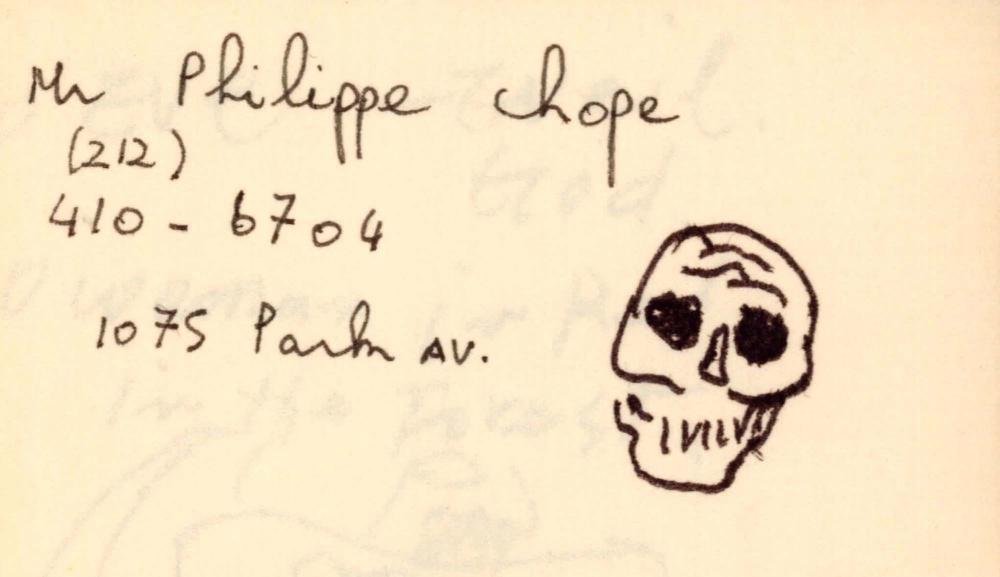 Mr Philippe Chope
(212)
410 - 6704
1075 Park AV.